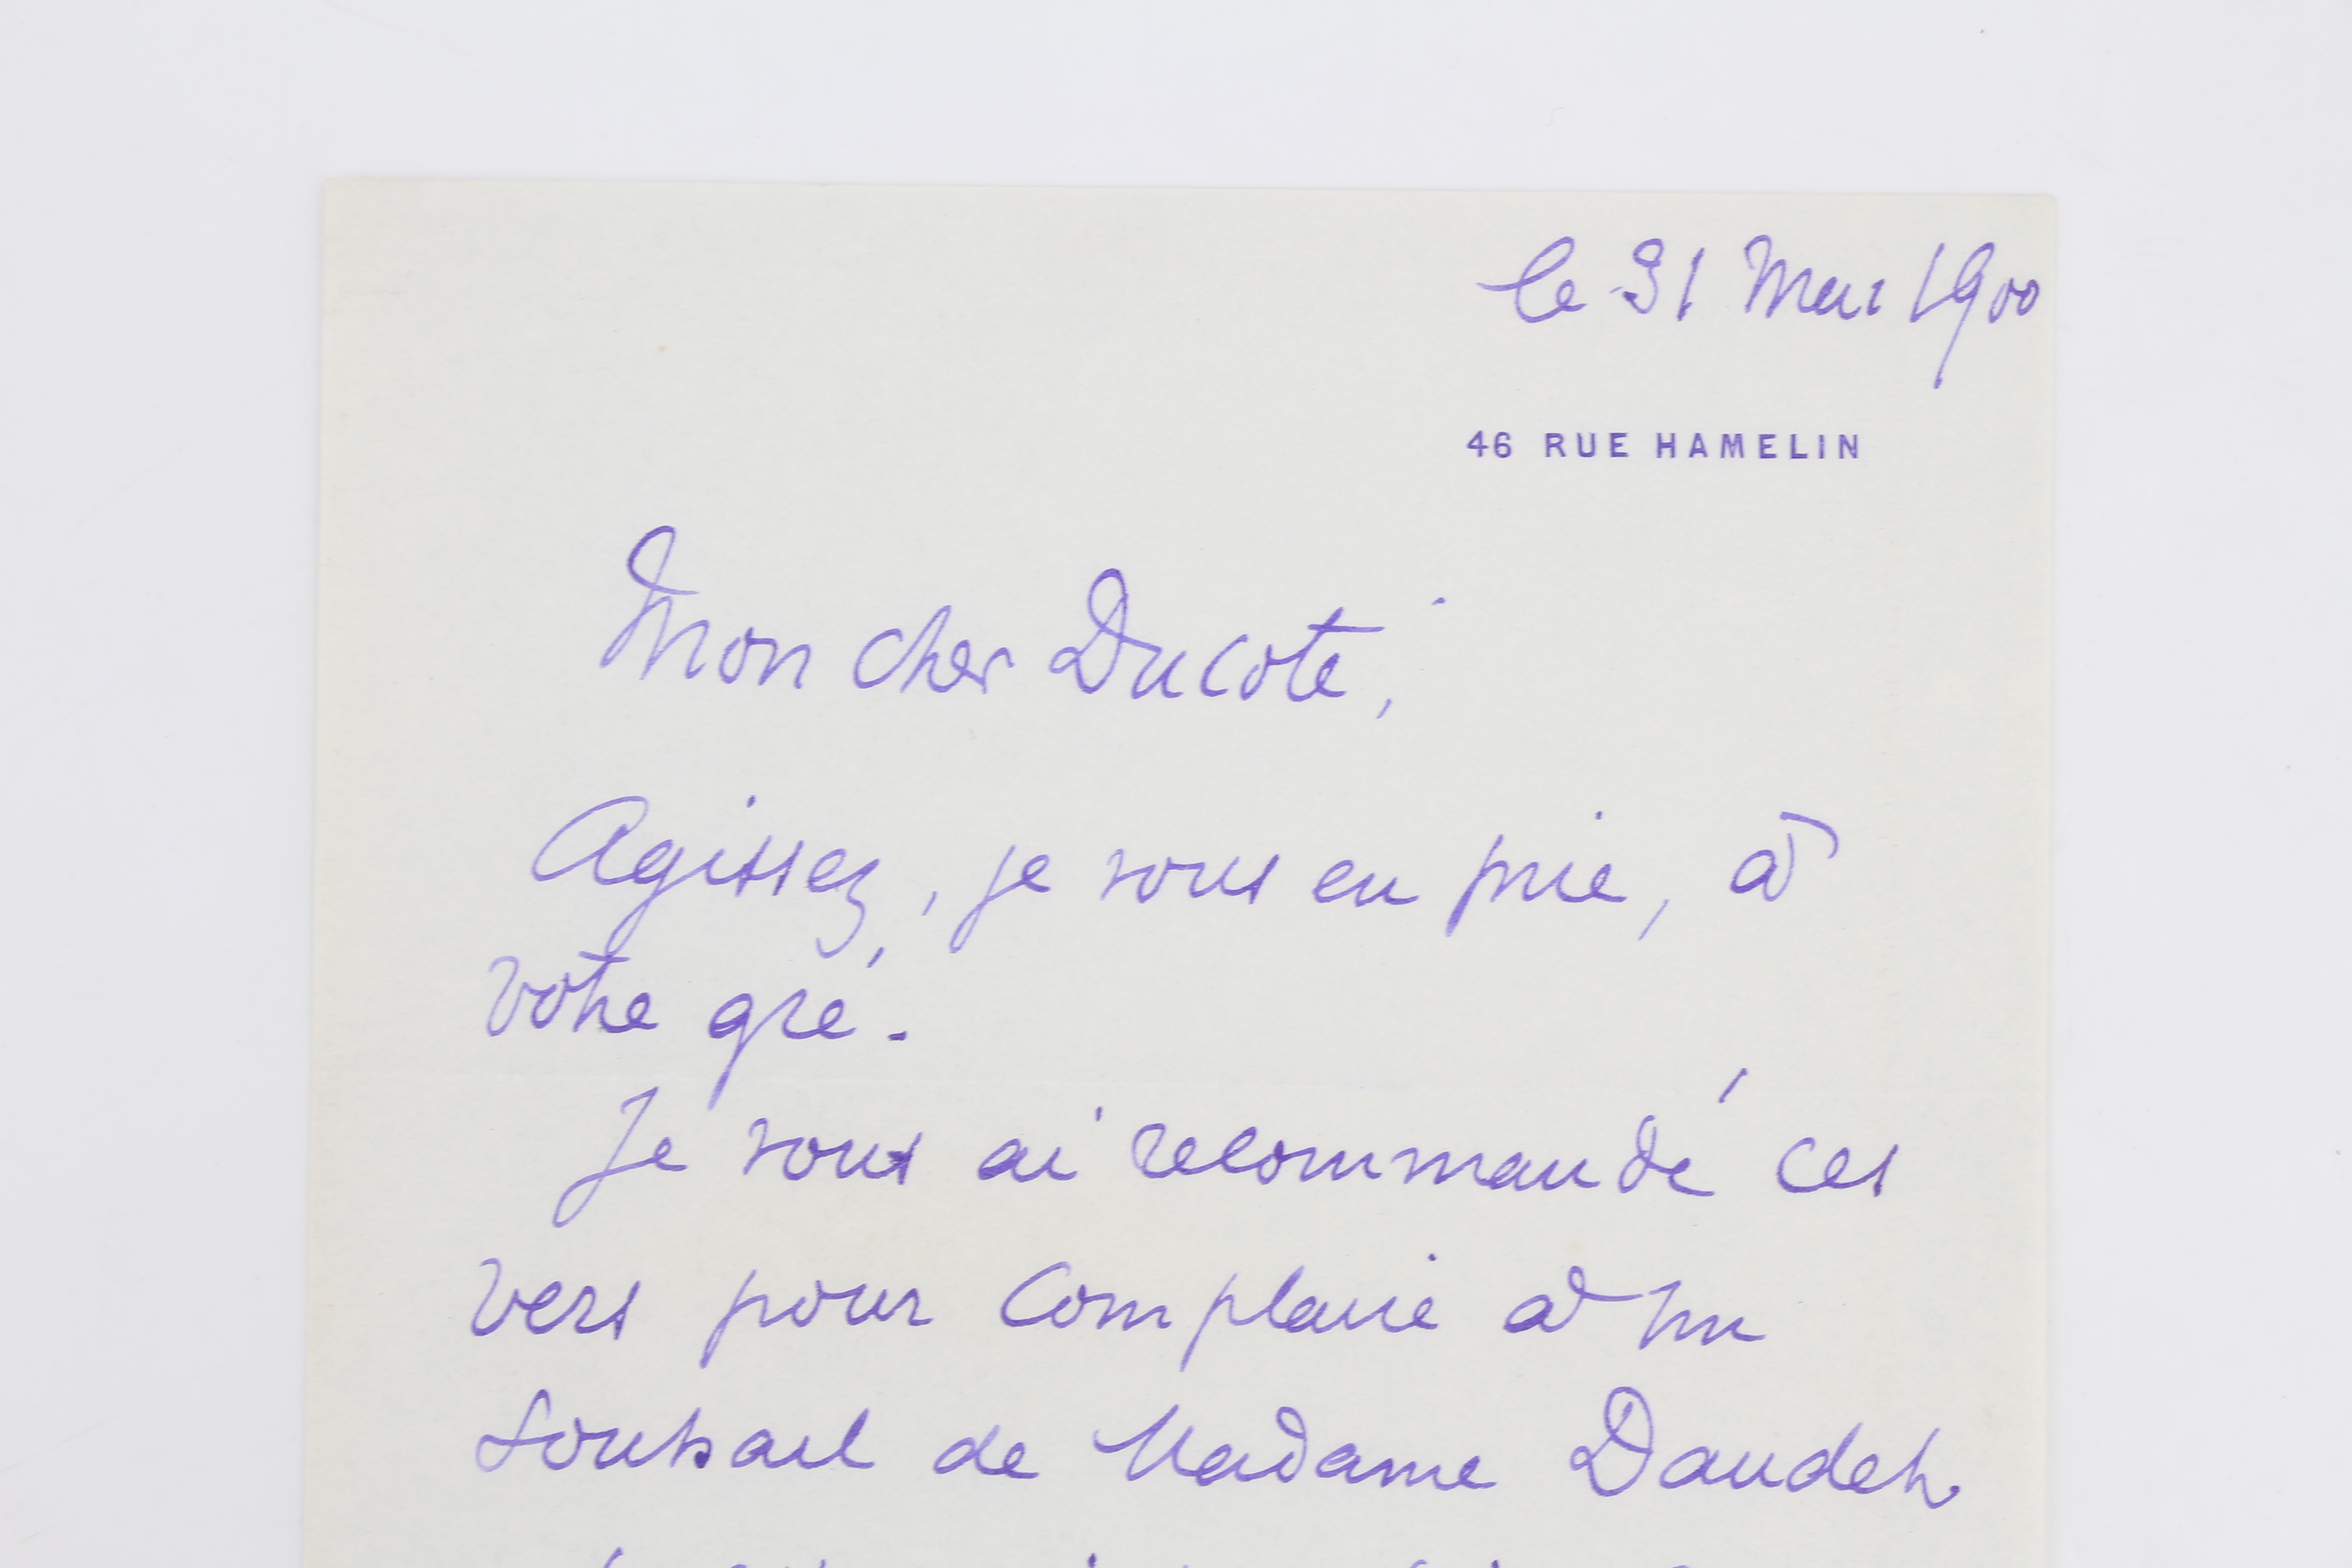 le 31 Mai 1900
46 RUE HAMELIN
Mon cher Ducoté,
Agissez, je vous en prie, à
votre gré.
Je vous ai recommandé ces
vers pour complaire à un
souhait de Madame Daudet.